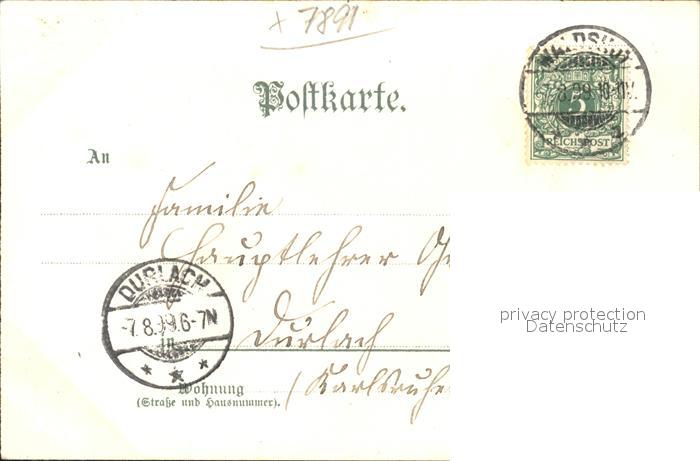 x 7891
Postkarte.
WALDSHUT
REICHSPOST
5
An
Familie
Hauptlehrer
DURLACH
-7.8.99.6-7N
Durlach
Wohnung
(Karlsruhe
(Straße und Hausnummer).
privacy protection
Datenschutz